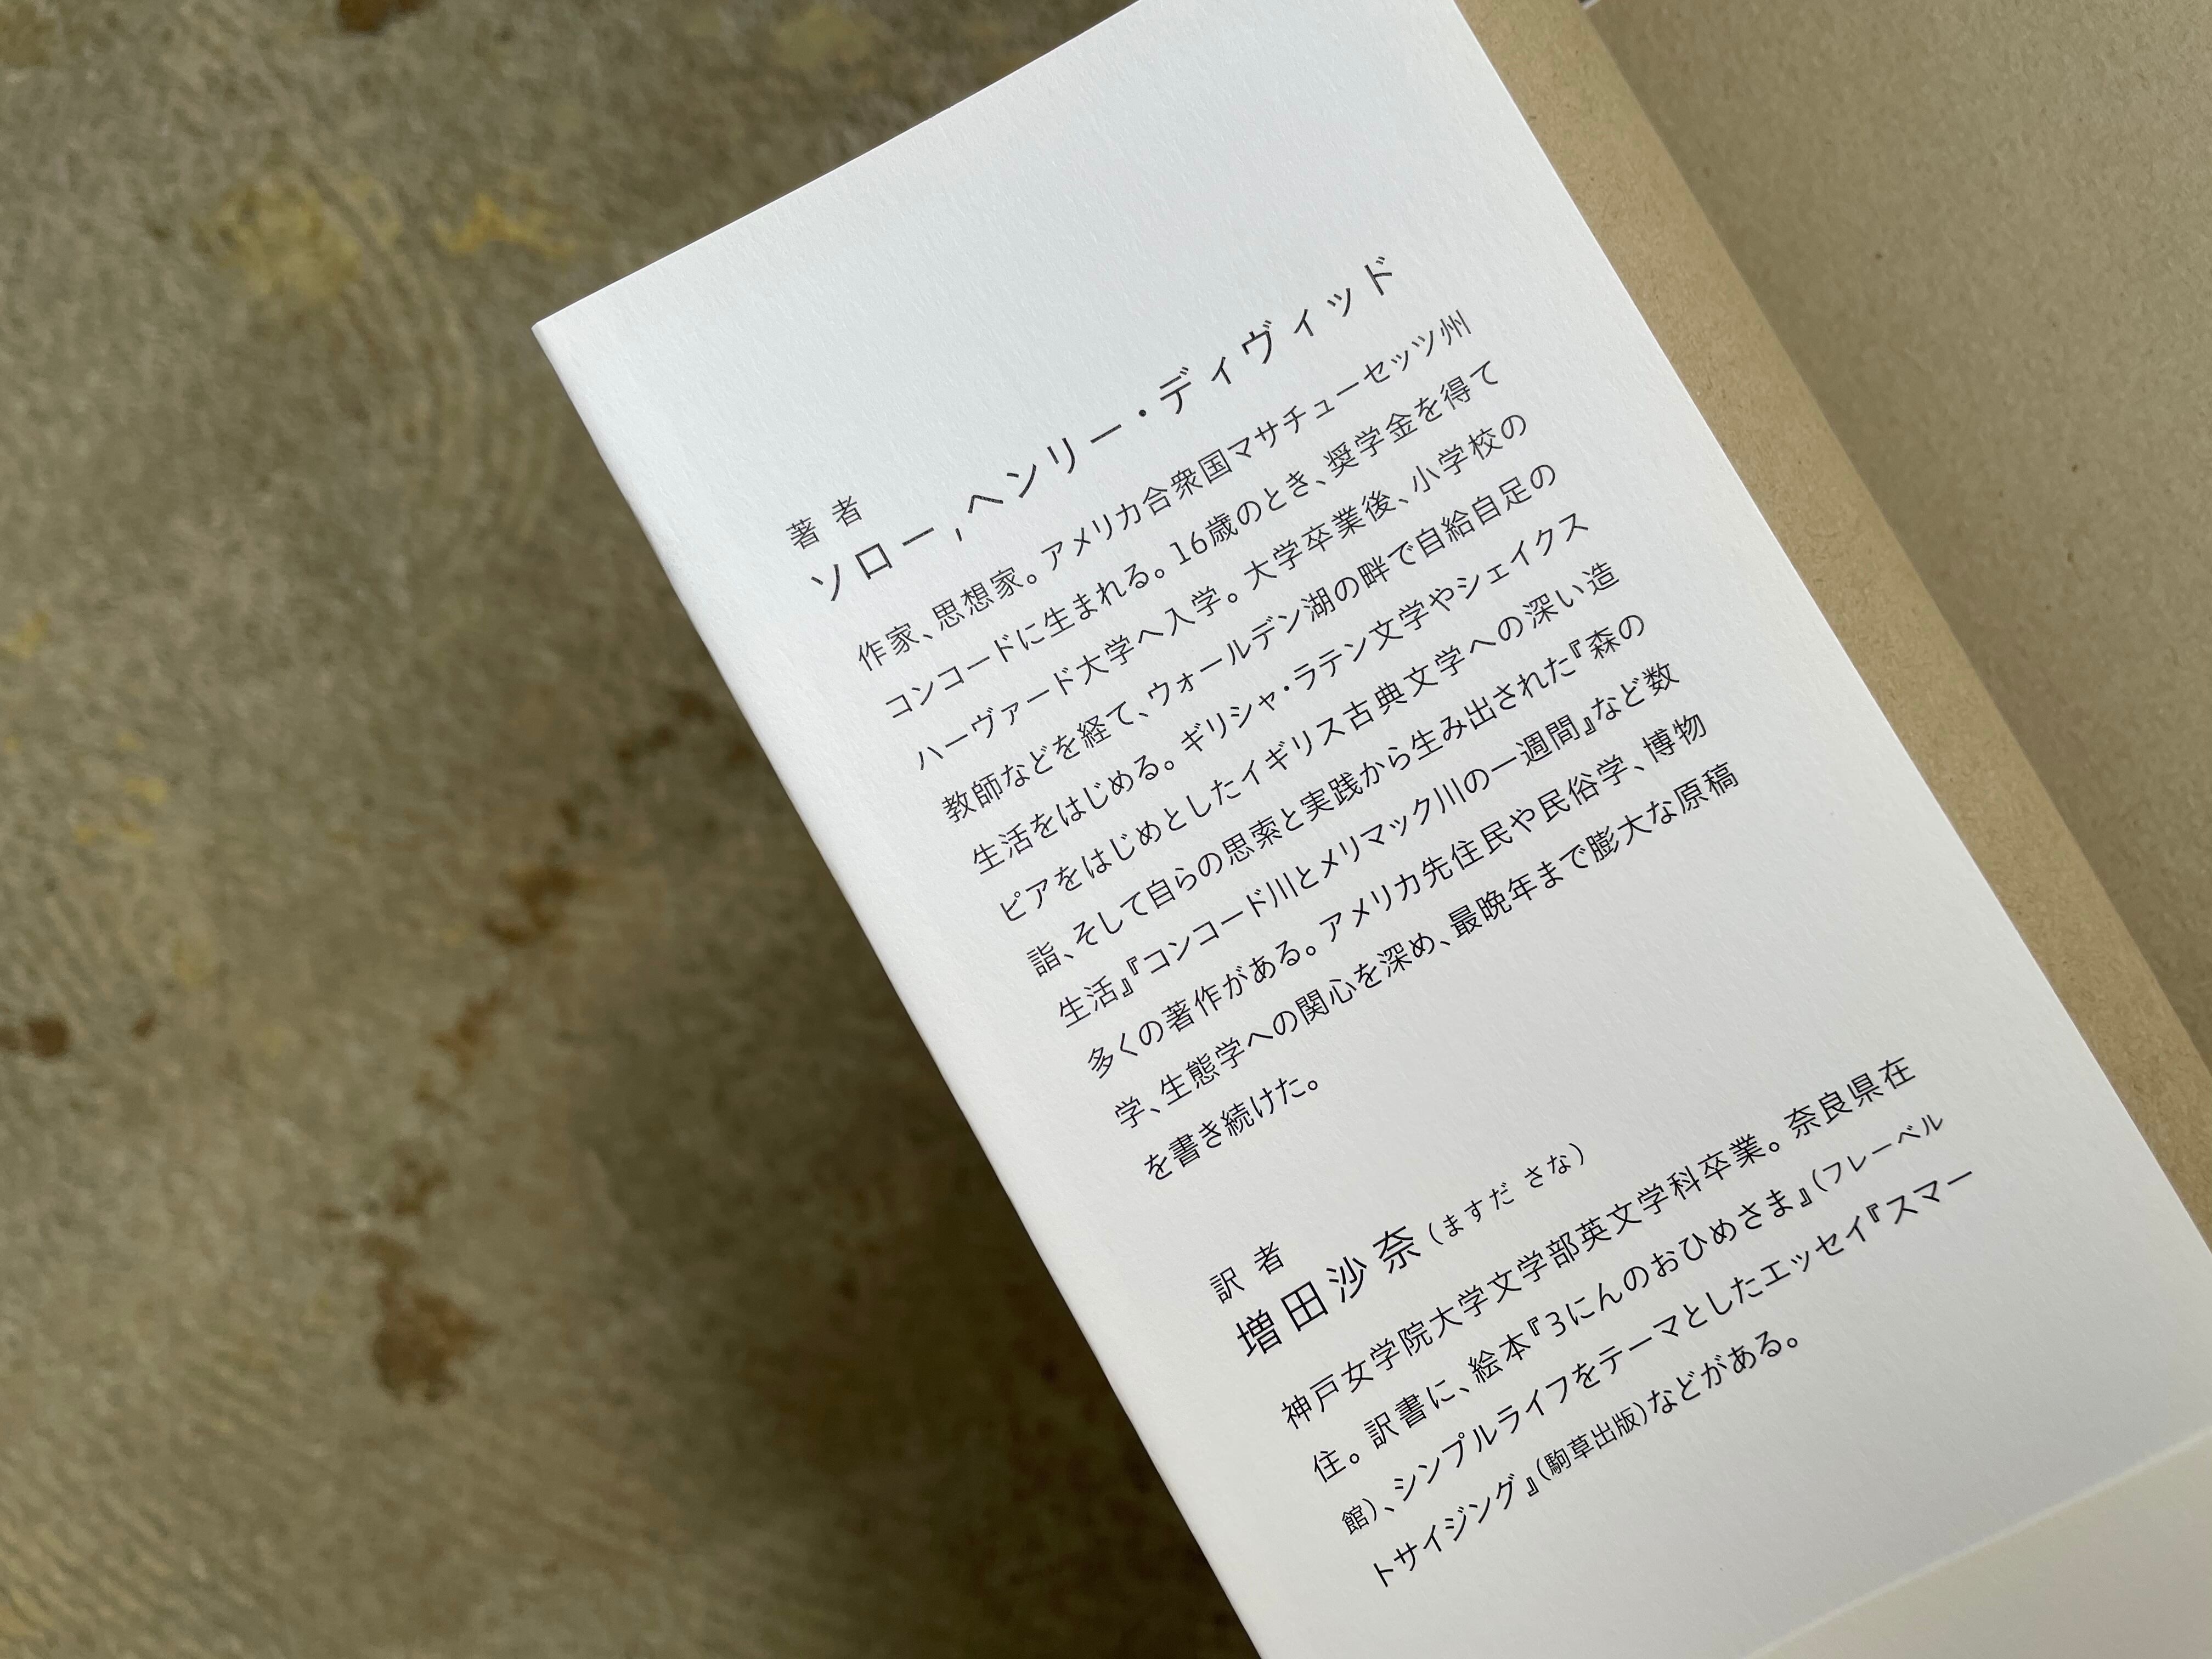 著者
ソロー,ヘンリー・ディヴィッド
作家、思想家。アメリカ合衆国マサチューセッツ州
コンコードに生まれる。16歳のとき、奨学金を得て
ハーヴァード大学へ入学。大学卒業後、小学校の
教師などを経て、ウォールデン湖の畔で自給自足の
生活をはじめる。ギリシャ・ラテン文学やシェイクス
ピアをはじめとしたイギリス古典文学への深い造
詣、そして自らの思索と実践から生み出された『森の
生活』『コンコード川とメリマック川の一週間』など数
多くの著作がある。アメリカ先住民や民俗学、博物
学、生態学への関心を深め、最晩年まで膨大な原稿
を書き続けた。
訳者
増田沙奈(ますだ さな)
神戸女学院大学文学部英文学科卒業。奈良県在
住。訳書に、絵本『3にんのおひめさま』(フレーベル
館)、シンプルライフをテーマとしたエッセイ『スマー
トサイジング』(駒草出版)などがある。